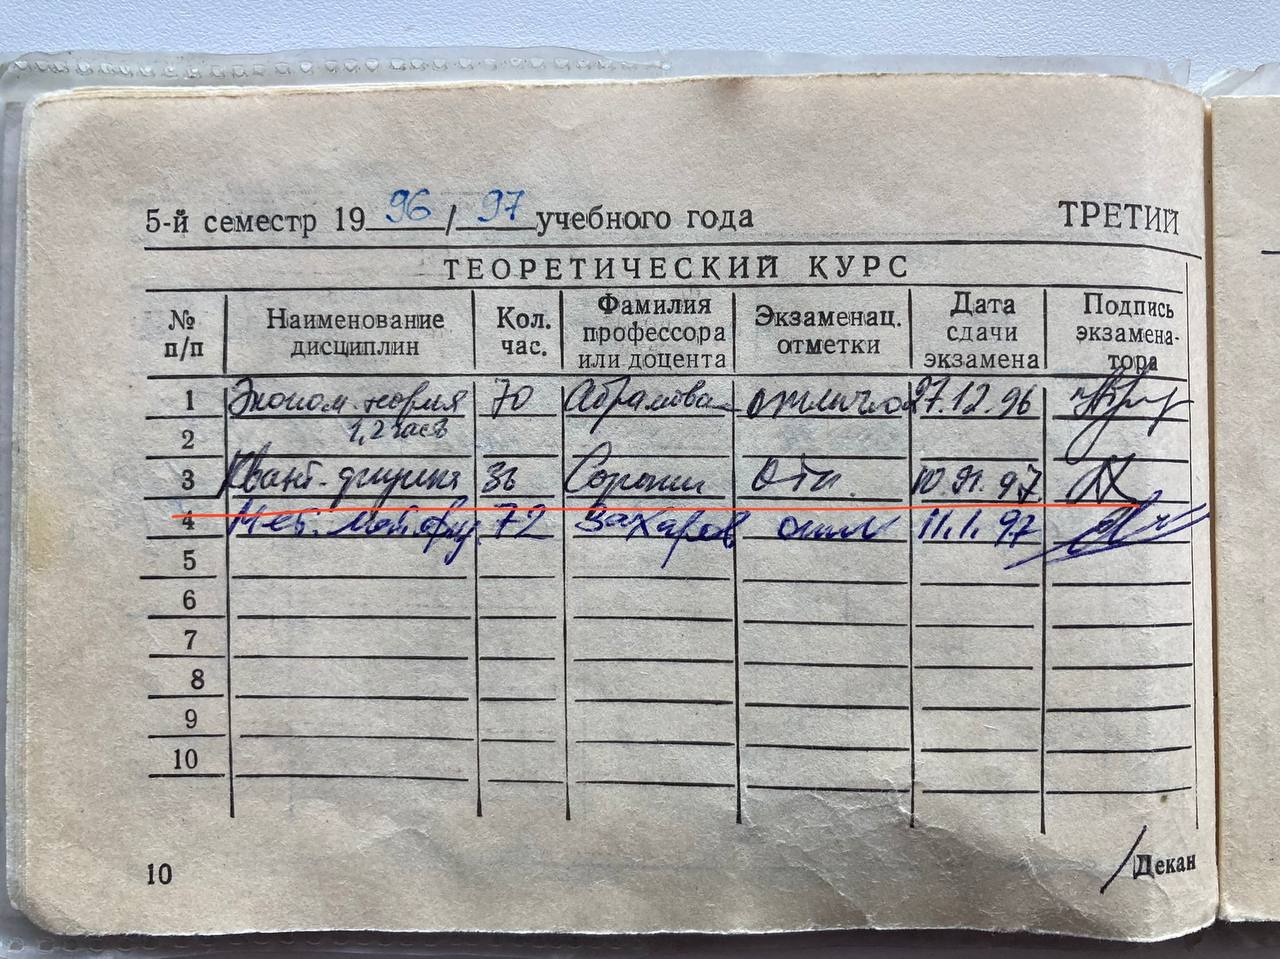 5-й семестр 1996/97 учебного года ТРЕТИЙ
ТЕОРЕТИЧЕСКИЙ КУРС
№ п/п Наименование дисциплин Кол. час. Фамилия профессора или доцента Экзаменац. отметки Дата сдачи экзамена Подпись экзаменатора
1 Эконом. теория 70 Абрамова отлично 27.12.96
2 1,2 часть
3 Квант. физика 36 Сорокин Отл.
4 Мет. 72 Захаров отл 11.1.97
5
6
7
8
9
10
10 Декан